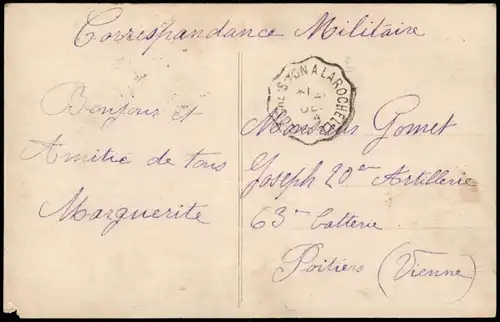 Correspondance Militaire
YON A LA ROCHELLE
Bonjour et
Amitie de tous
Marguerite
Monsieur Gomet
Joseph 20em Artillerie
63e batterie
Poitiers (Vienne)